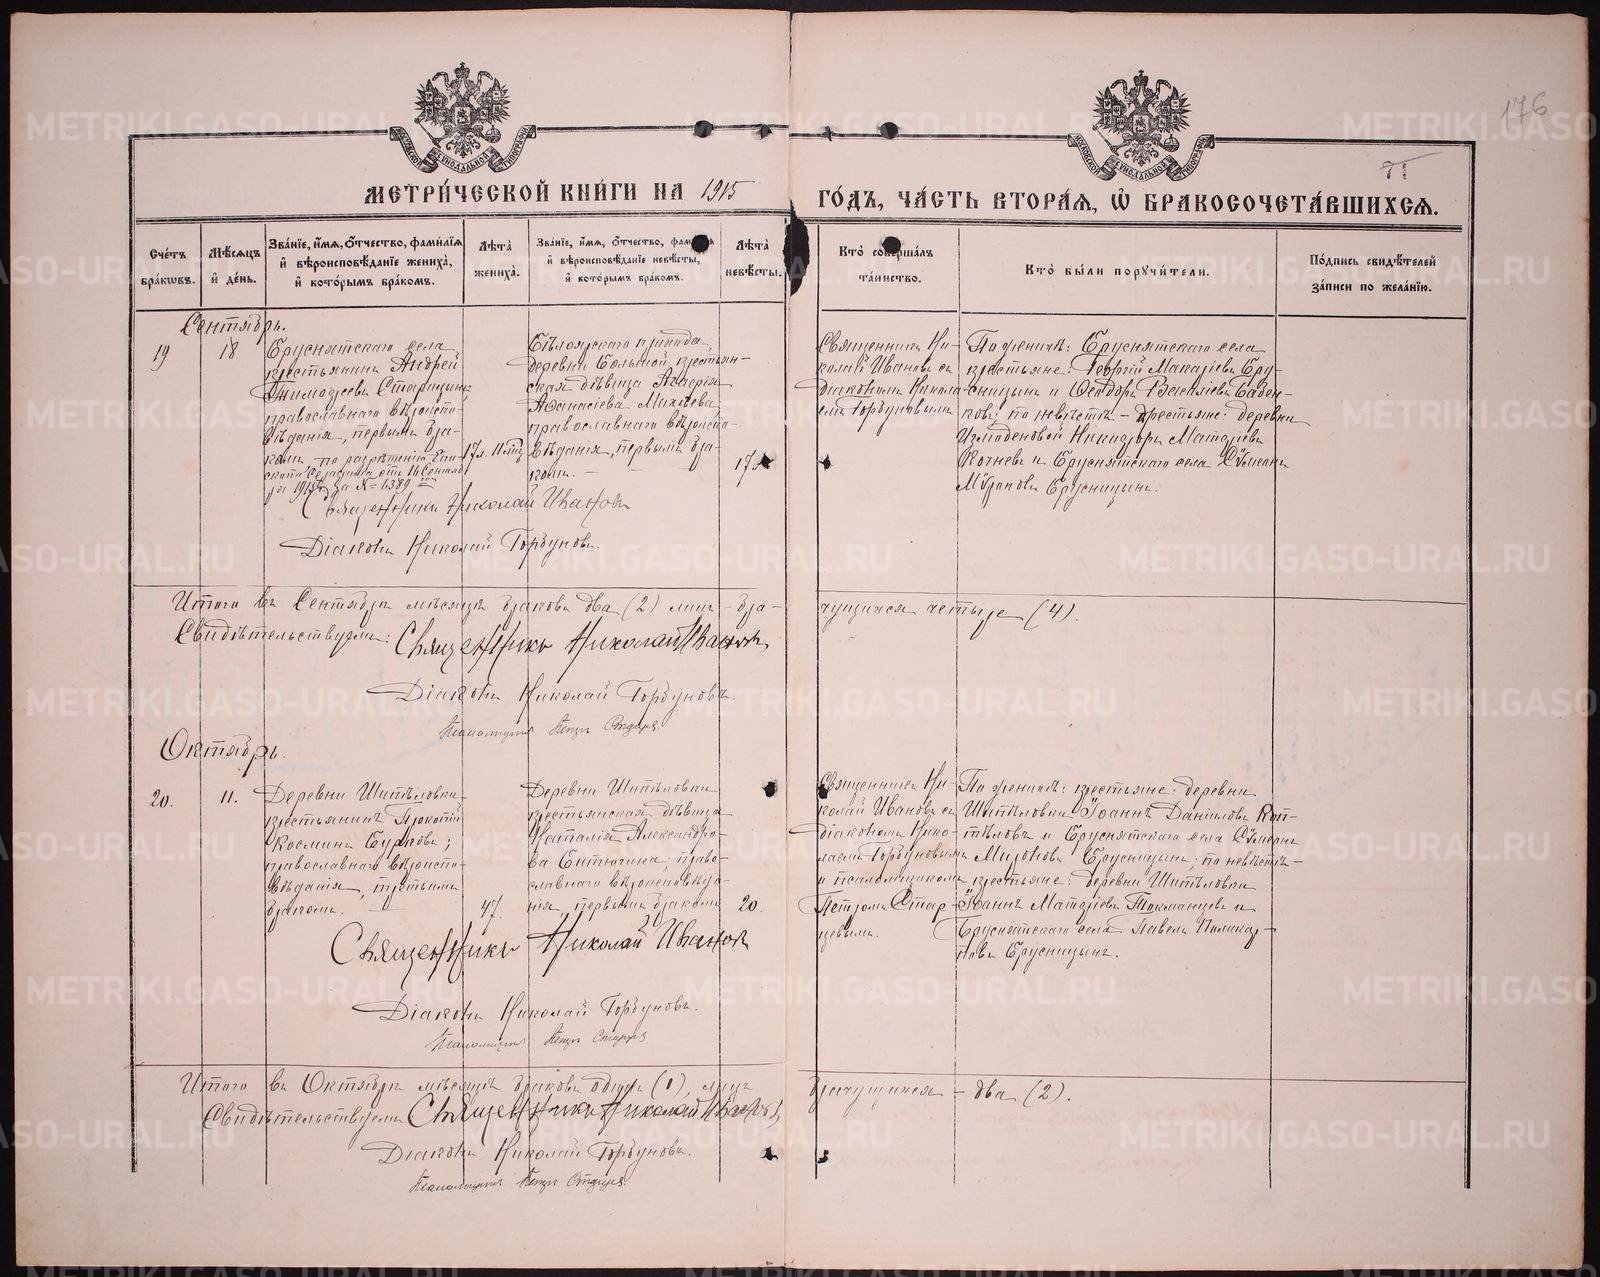 176
МОСКОВСКОЙ СѴНОДАЛЬНОЙ ТИПОГРАФІИ
МОСКОВСКОЙ СѴНОДАЛЬНОЙ ТИПОГРАФІИ
МЕТРИ́ЧЕСКОЙ КНИ́ГИ НА 1915
ГО́ДЪ, ЧА́СТЬ ВТОРА́Я, Ѡ҆ БРАКОСОЧЕТА́ВШИХСЯ.
Счéтъ бра́кѡвъ.
Мѣ́сяцъ и҆ де́нь.
Зва́нїе, и҆́мя, ѻ҆́тчество, фами́лїя и҆ вѣроисповѣ́данїе жениха̀, и҆ кото́рымъ бра́комъ.
Лѣ́та жениха̀.
Зва́нїе, и҆́мя, ѻ҆́тчество, фами́лїя и҆ вѣроисповѣ́данїе невѣ́сты, и҆ кото́рымъ бра́комъ.
Лѣ́та невѣ́сты.
Кто̀ соверша́лъ та́инство.
Кто̀ бы́ли порꙋчи́тели.
По́дпись свидѣ́телей за́писи по жела́нїю.
Сентябрь.
19
18
Бруснятскаго села
крестьянинъ Андрей
Тимофеевъ Старицынъ,
православнаго вѣроиспо-
вѣданія, первымъ бра-
комъ по разрѣшенію Епи-
скопа Серафима отъ 14 Сентяб-
ря 1915 г. за № 4389
17 л. 11 мѣс.
Бѣлоярскаго прихода,
деревни Большой, крестьян-
ская дѣвица
Аѳанасіева Михѣева,
православнаго вѣроиспо-
вѣданія, первымъ бра-
комъ.
17 л.
Священникъ Ни-
колай Ивановъ съ
діакономъ Никола-
емъ Горбуновымъ
По женихѣ: Бруснятскаго села
крестьяне: Георгій Макаріевъ Бру-
сницынъ и Ѳеодоръ Василіевъ Бабен-
ковъ; по невѣстѣ - крестьяне: деревни
Измоденовой Никифоръ Матѳіевъ
Кочневъ и Бруснятскаго села Сѵмеонъ
Мѵроновъ Брусницынъ.
Священникъ Николай Ивановъ
Діаконъ Николай Горбуновъ.
Итого въ Сентябрѣ мѣсяцѣ браковъ два (2) лицъ - бра-
чущихся четыре (4).
Свидѣтельствуемъ: Священникъ Николай Ивановъ
Діаконъ Николай Горбуновъ.
Псаломщикъ Петръ Старцевъ
Октябрь.
20.
11.
Деревни Шипѣловки
крестьянинъ Прокопій
Косминъ Бурковъ;
православнаго вѣроиспо-
вѣданія, третьимъ
бракомъ.
47.
Деревни Шипѣловки
крестьянская дѣвица
Наталія Александро-
ва Битюгина; право-
славнаго вѣроисповѣда-
нія, первымъ бракомъ
20.
Священникъ Ни-
колай Ивановъ съ
діакономъ Нико-
лаемъ Горбуновымъ
и псаломщикомъ
Петромъ Стар-
цевымъ.
По женихѣ: крестьяне: деревни
Шипѣловки Іоаннъ Даніиловъ Коп-
тѣловъ и Бруснятскаго села Сѵмеонъ
Мироновъ Брусницынъ; по невѣстѣ -
крестьяне: деревни Шипѣловки
Іоаннъ Матѳіевъ Токманцевъ и
Бруснятскаго села Павелъ Поликар-
повъ Брусницынъ.
Священникъ Николай Ивановъ
Діаконъ Николай Горбуновъ.
Псаломщикъ Петръ Старцевъ
Итого въ Октябрѣ мѣсяцѣ браковъ одинъ (1), лицъ
брачущихся - два (2).
Свидѣтельствуемъ Священникъ Николай Ивановъ
Діаконъ Николай Горбуновъ.
Псаломщикъ Петръ Старцевъ
METRIKI.GASO-URAL.RU